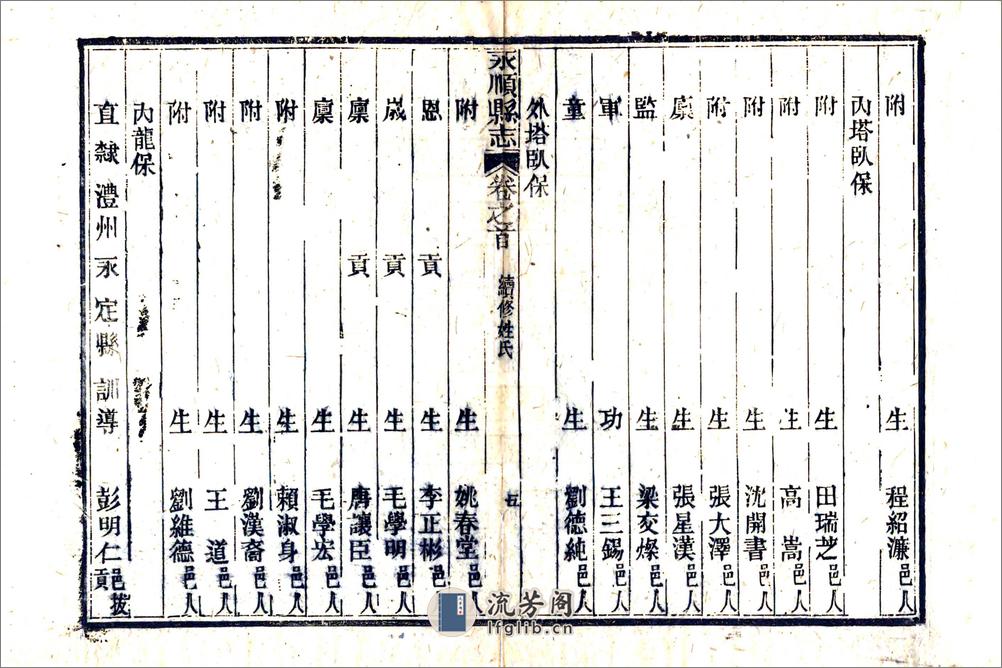 附生程紹濂邑人
內塔臥保
附生田瑞芝邑人
附生高嵩邑人
附生沈開書邑人
附生張大澤邑人
廪生張星漢邑人
監生梁交燦邑人
軍功王三錫邑人
童生劉德純邑人
外塔臥保
永順縣志
卷之首
續修姓氏
五
附生姚春堂邑人
恩貢生李正彬邑人
歲貢生毛學明邑人
廩貢生唐讓臣邑人
廩生毛學宏邑人
附生賴淑身邑人
附生劉漢裔邑人
附生王道邑人
附生劉維德邑人
內龍保
直隸澧州永定縣訓導彭明仁邑拔貢
流芳阁
lfglib.cn